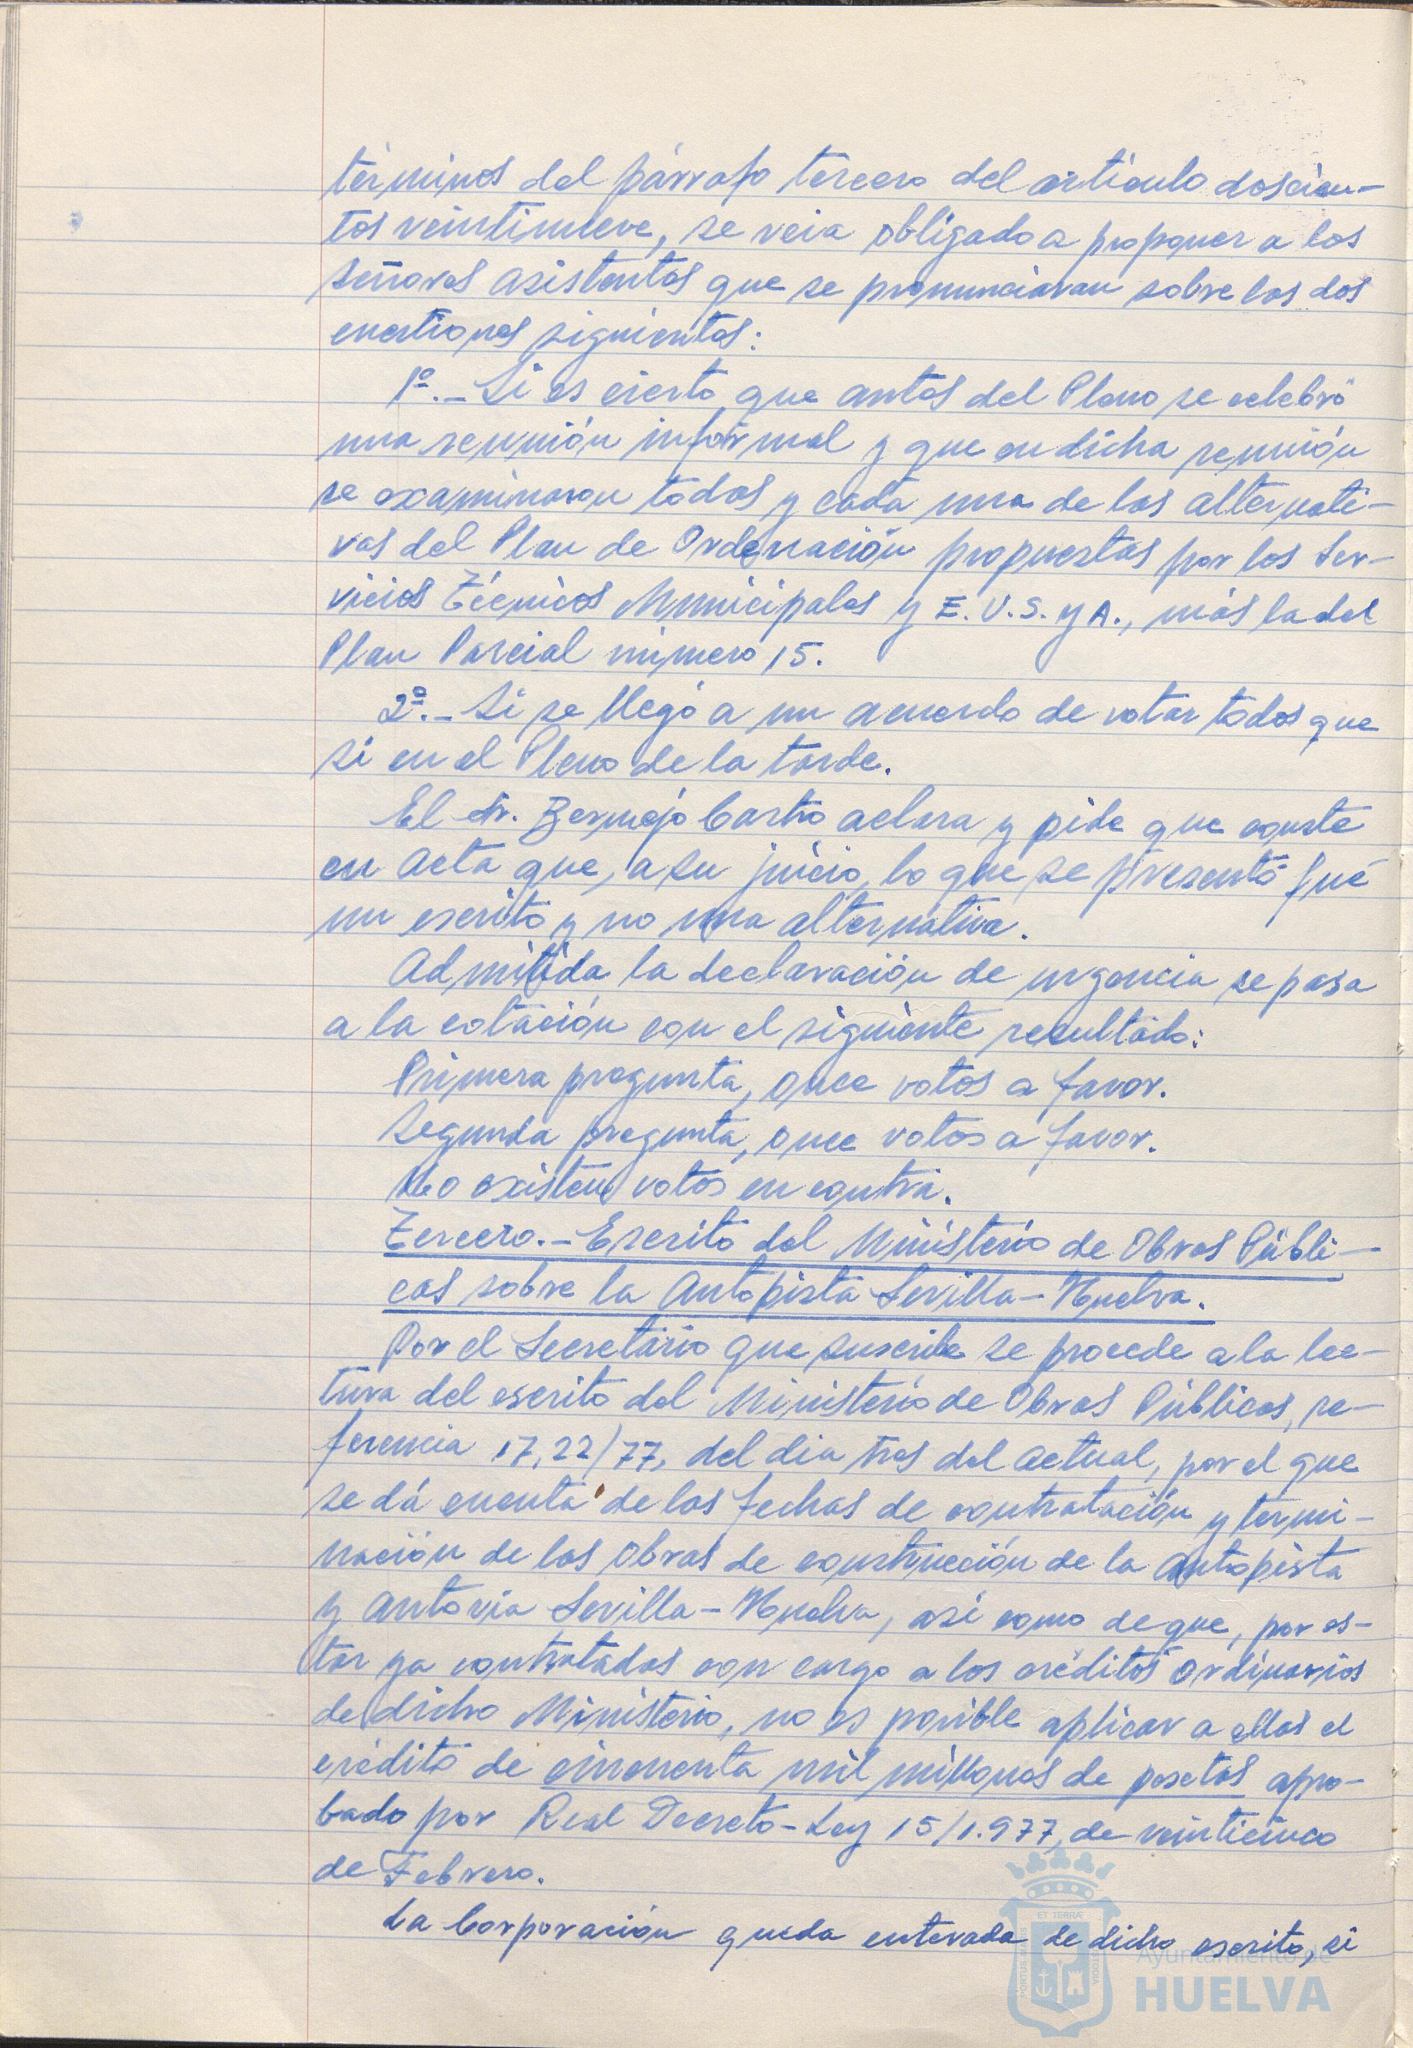 términos del párrafo tercero del artículo doscien-
tos veintinueve, se veia obligado a proponer a los
señores asistentes que se pronunciaran sobre las dos
cuestiones siguientes:
1º.- Si es cierto que antes del Pleno se celebró
una reunión informal y que en dicha reunión
se examinaron todas y cada una de las alternati-
vas del Plan de Ordenación propuestas por los Ser-
vicios Técnicos Municipales y E.U.S. y A., más la del
Plan Parcial número 15.
2º.- Si se llegó a un acuerdo de votar todos que
si en el Pleno de la tarde.
El Sr. Bermejo Castro aclara y pide que conste
en acta que, a su juicio, lo que se presentó fué
un escrito y no una alternativa.
Admitida la declaración de urgencia se pasa
a la votación con el siguiente resultado:
Primera pregunta, once votos a favor.
Segunda pregunta, once votos a favor.
No existen votos en contra.
Tercero.- Escrito del Ministerio de Obras Públi-
cas sobre la Autopista Sevilla-Huelva.
Por el Secretario que suscribe se procede a la lec-
tura del escrito del Ministerio de Obras Públicas, re-
ferencia 17,22/77, del dia tres del actual, por el que
se dá cuenta de las fechas de contratación y termi-
nación de las obras de construcción de la autopista
y autovia Sevilla-Huelva, asi como de que, por es-
tar ya contratadas con cargo a los créditos ordinarios
de dicho Ministerio, no es posible aplicar a ellas el
crédito de cincuenta mil millones de pesetas apro-
bado por Real Decreto-Ley 15/1.977, de veinticinco
de Febrero.
La Corporación queda enterada de dicho escrito, si
Ayuntamiento de
HUELVA